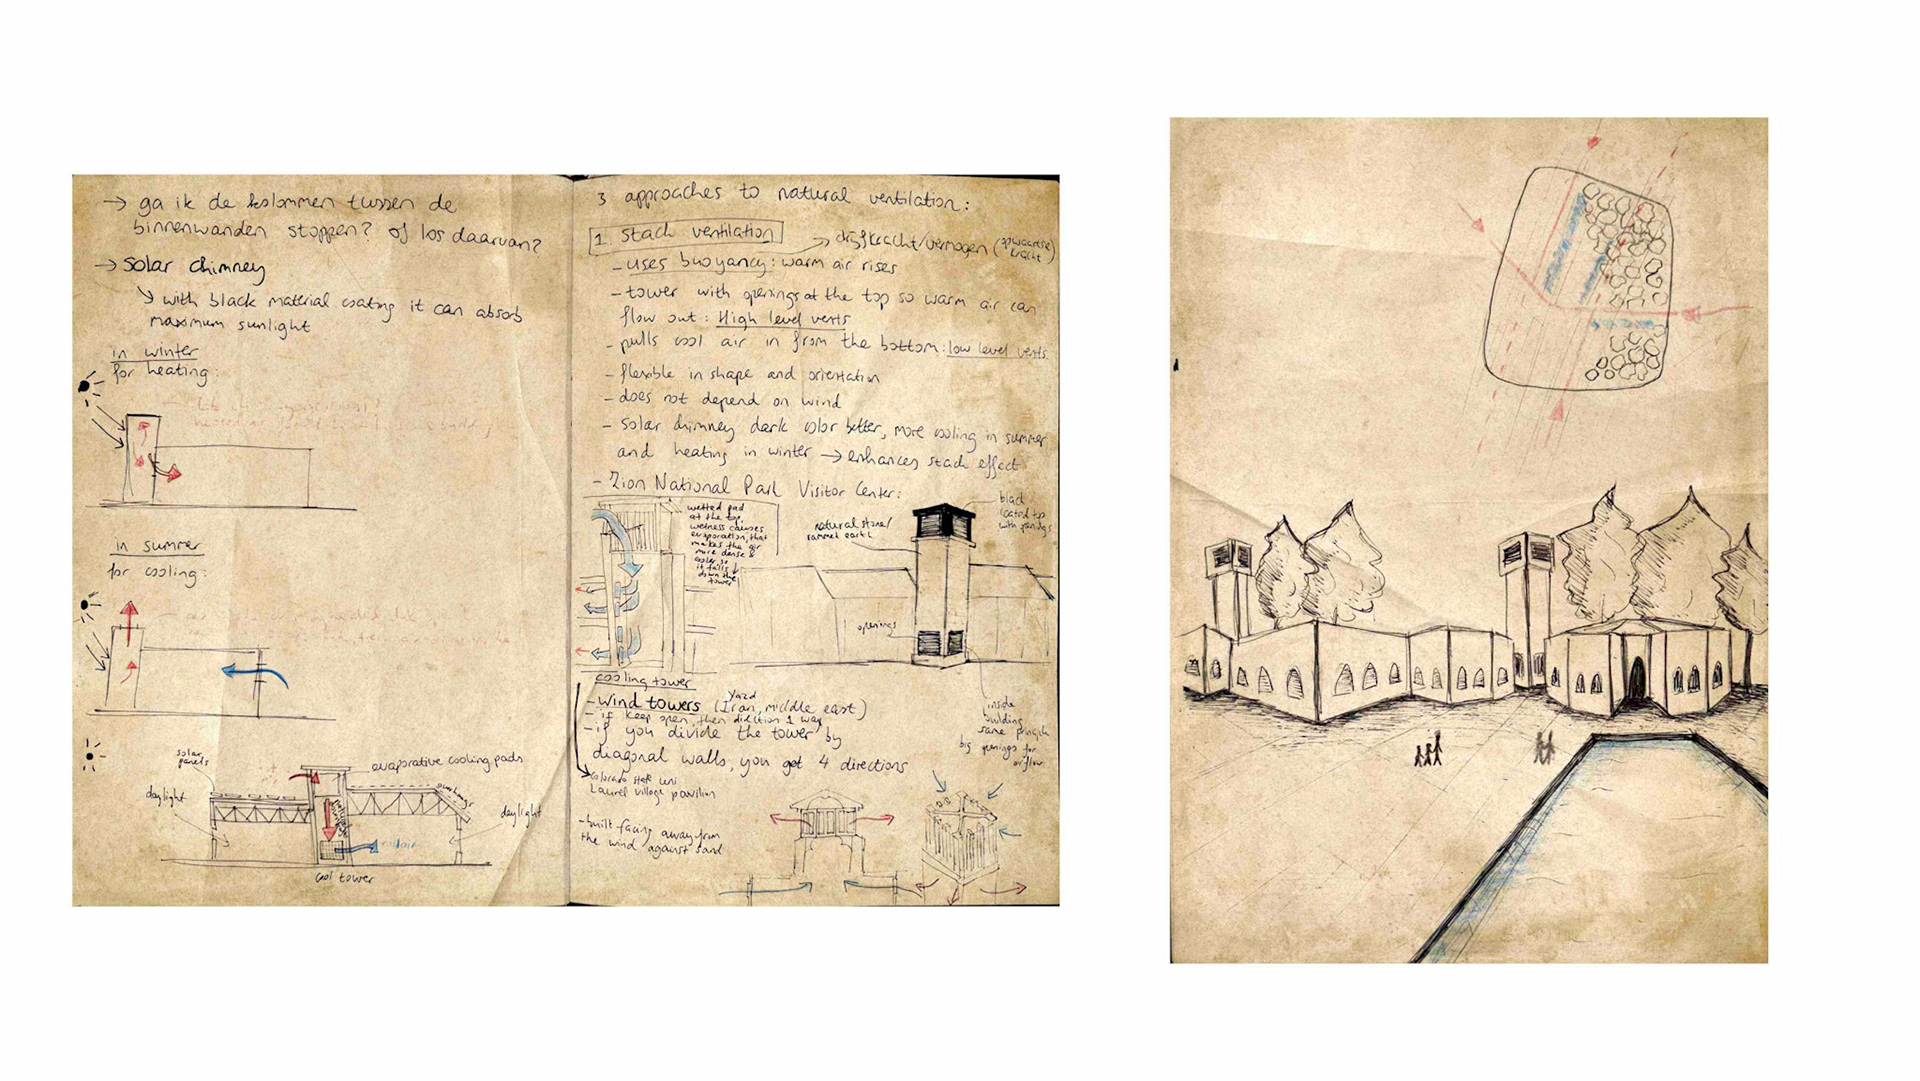 → ga ik de kolommen tussen de
binnenwanden stoppen? of los daarvan?
→ solar chimney
↳ with black material coating it can absorb
maximum sunlight
in winter
for heating:
in summer
for cooling:
solar panels
evaporative cooling pads
daylight
overhangs
daylight
cool air
cool tower
3 approaches to natural ventilation:
1. stack ventilation
→ drijfkracht/vermogen (opwaartse kracht)
- uses buoyancy: warm air rises
- tower with openings at the top so warm air can
flow out: High level vents
- pulls cool air in from the bottom: low level vents
- flexible in shape and orientation
- does not depend on wind
- solar chimney dark color better, more cooling in summer
and heating in winter → enhances stack effect
- Zion National Park Visitor Center:
wetted pad
at the top
wetness causes
evaporation, that
makes the air
more dense &
cooler so
it falls
down the
tower
natural stone/
rammed earth
black
coated top
with openings
openings
cooling tower
inside
building
same principle
big openings for
airflow
- wind towers (Yazd Iran, middle east)
- if keep open, then direction 1 way
- if you divide the tower by
diagonal walls, you get 4 directions
colorado state uni
Laurel village pavilion
- built facing away from
the wind against sand